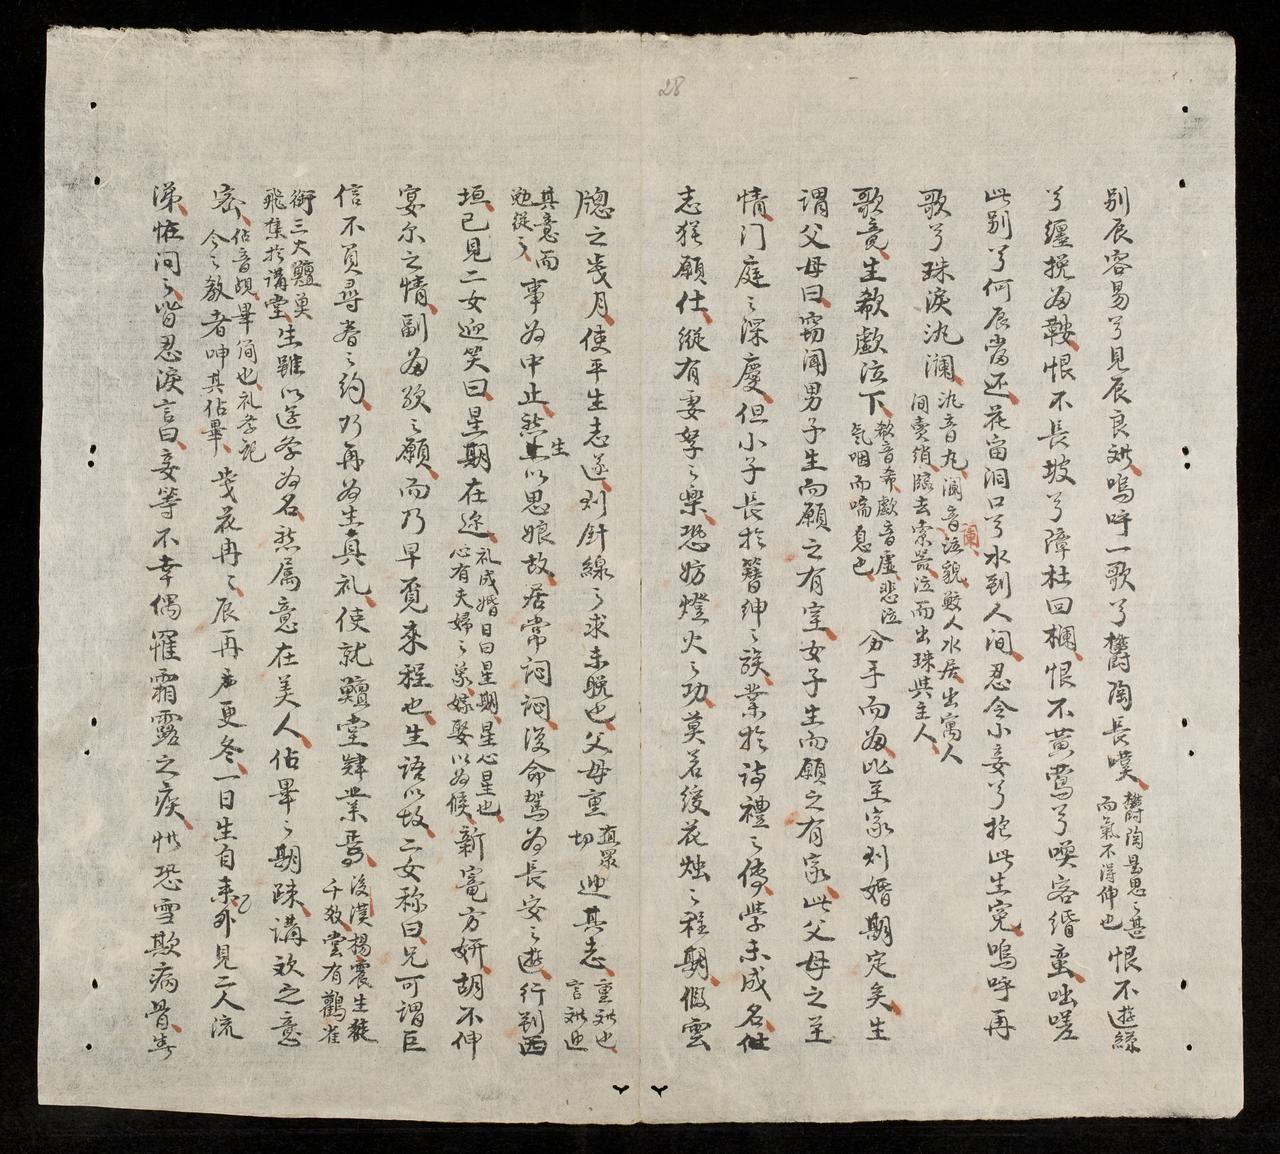 28
別辰容易兮見辰良难嗚呼一歌兮欝陶長嘆欝陶是思之甚而氣不得伸也恨不遊絲
兮纏挽為鞍恨不長坡兮障杜回欄恨不黃鶯兮喚客緡蛮咄嗟
此别兮何辰當还花宙洞口兮水到人间忍令小妾兮抱此生寃嗚呼再
歌兮珠淚氿瀾氿音丸瀾音闌泣貌鮫人水居出寓人间賣绡臨去索器泣而出珠與主人
歌竟生欷歔泣下欷音希歔音虚悲泣气咽而喘息也分手而為比至家刘婚期定矣生
謂父母曰窃闻男子生而願之有室女子生而願之有家此父母之至
情门庭之深慶但小子長於簪紳之族業於詩禮之傳學未成名仕
志猶願仕縱有妻孥之樂恐妨燈火之功莫若缓花烛之程期假雲
牕之歲月使平生志遂刘針線之求未脱也父母重直眾切迎其志重难也言难迎
其意而勉從之事為中止愁生以思娘故居常詞詞後命駕為長安之遊行到西
垣已見二女迎笑曰星期在迩礼成婚日曰星期星心星也心有夫婦之象嫁娶以為候新寵方妍胡不伸
宴尔之情副為欵之願而乃早覓來程也生語以故二女称曰兄可謂巨
信不負尋眷之約乃再為生具礼使就鱣堂肄業焉後漢揚震生徒千数尝有鸛雀
衔三大鱣魚飛集於講堂生雖以遊学為名然属意在美人佔畢之期踈講欢之意
密佔音覘畢简也礼学記今之教者呻其佔畢歲花冉之辰再
更冬一日生自来外見二人流
涕怪问之皆忍淚言曰妾等不幸偶罹霜露之疾忧恐雪欺病骨